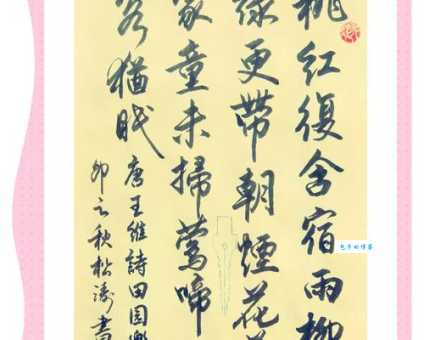 桃紅復含宿雨柳
綠更帶朝煙花
家童未掃鶯啼
客猶眠
唐王維詩田園樂
卯之秋松濤書